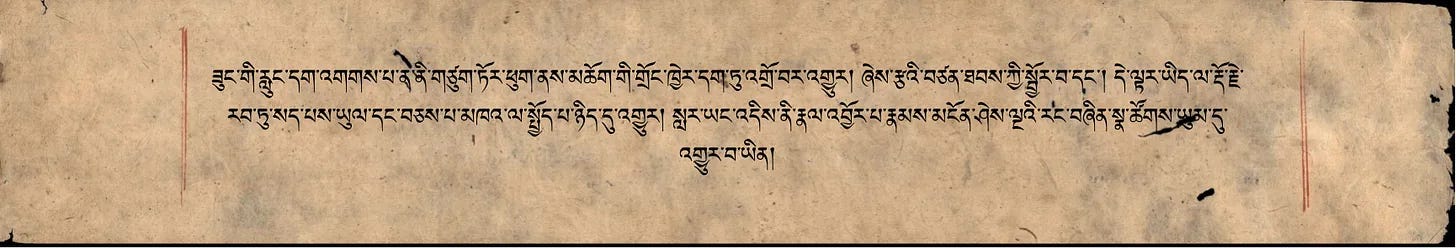 ཟུང་གི་རླུང་དག་འགགས་པ་ན་ནི་གཙུག་ཏོར་ཕུག་ནས་མཆོག་གི་གྲོང་ཁྱེར་དག་ཏུ་འགྲོ་བར་འགྱུར། ཞེས་རྩྭའི་བཙན་ཐབས་ཀྱི་སྦྱོར་བ་དང་། དེ་ལྟར་ཡིད་ལ་རྡོ་རྗེ་
རབ་ཏུ་སད་པས་ཡུལ་དང་བཅས་པ་མཁའ་ལ་སྤྱོད་པ་ཉིད་དུ་འགྱུར། སླར་ཡང་འདིས་ནི་རྣལ་འབྱོར་པ་རྣམས་མངོན་ཤེས་ལྔའི་རང་བཞིན་སྣ་ཚོགས་ཡུམ་དུ་
འགྱུར་བ་ཡིན།